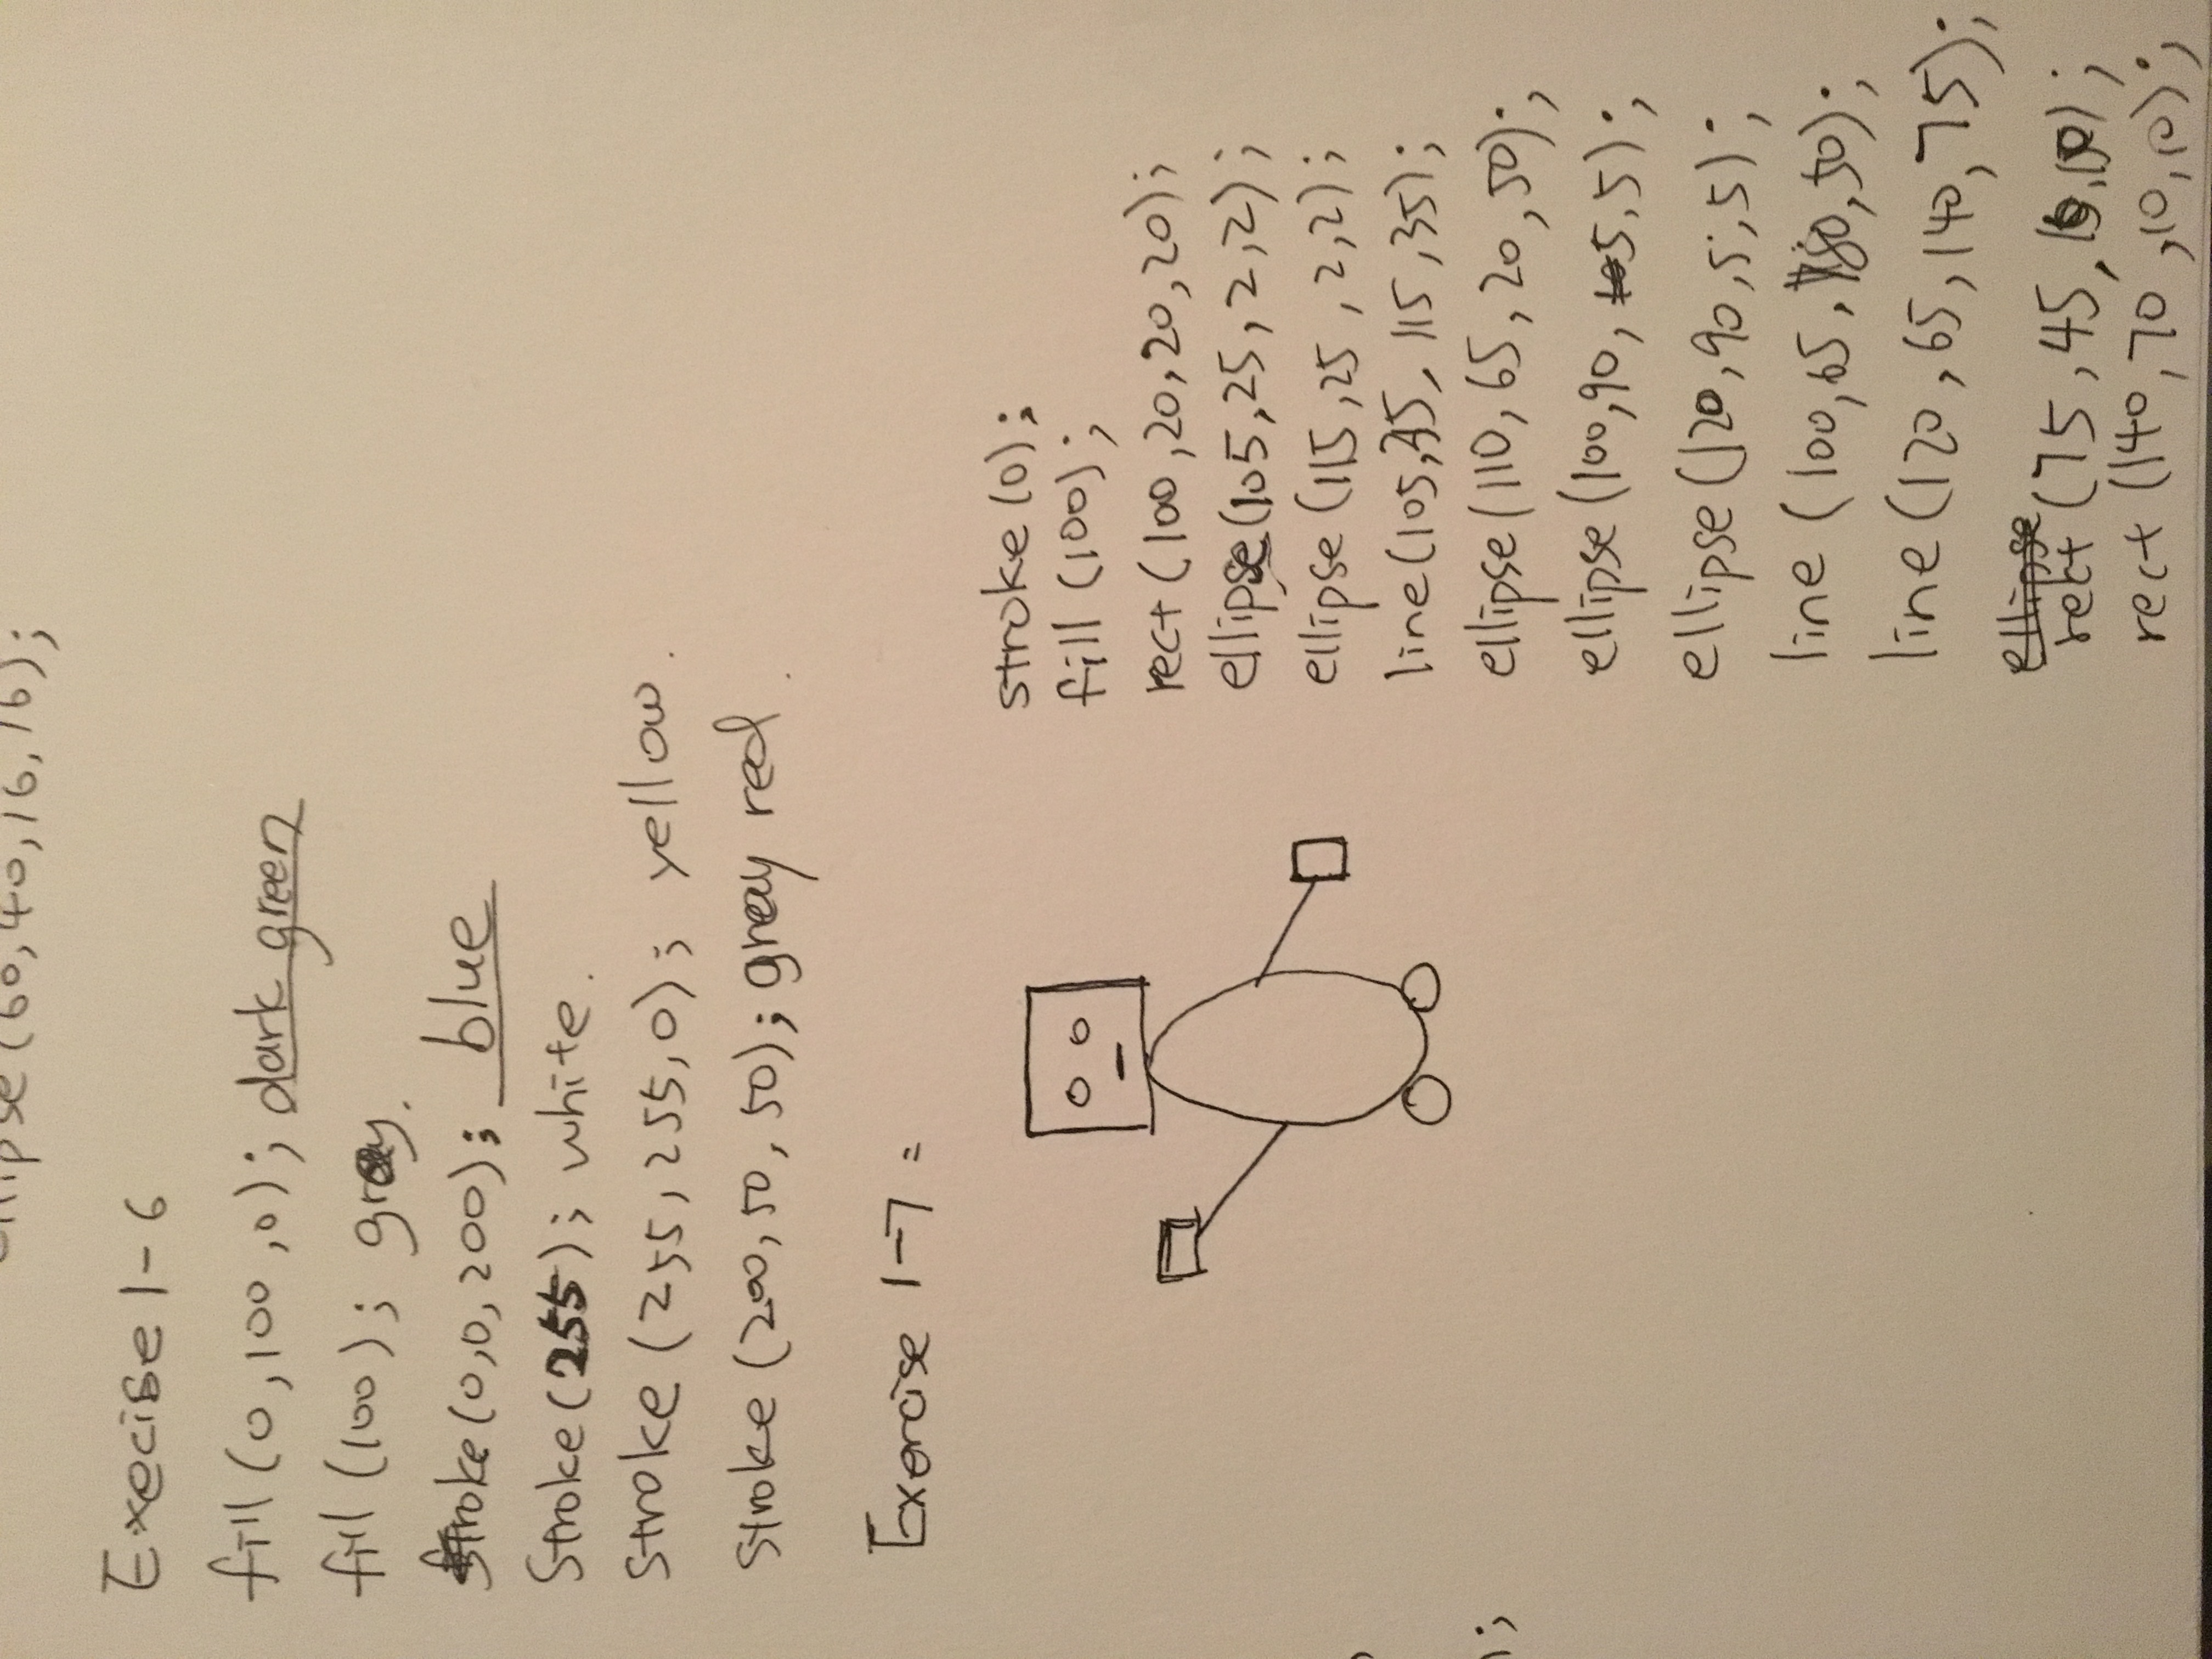 ellipse (60,40,16,16);
Execise 1-6
fill (0,100,0); dark green
fill (100); gray.
stroke (0,0,200); blue
Stroke (255); white.
stroke (255,255,0); yellow.
stroke (200,50,50); greay red.
Exercise 1-7 =
stroke (0);
fill (100);
rect (100,20,20,20);
ellipse (105,25,2,2);
ellipse (115,25,2,2);
line (105,35,115,35);
ellipse (110,65,20,50);
ellipse (100,90,5,5);
ellipse (120,90,5,5);
line (100,65,80,50);
line (120,65,140,75);
ellipse
rect (75,45,10,10);
rect (140,70,10,10);
;